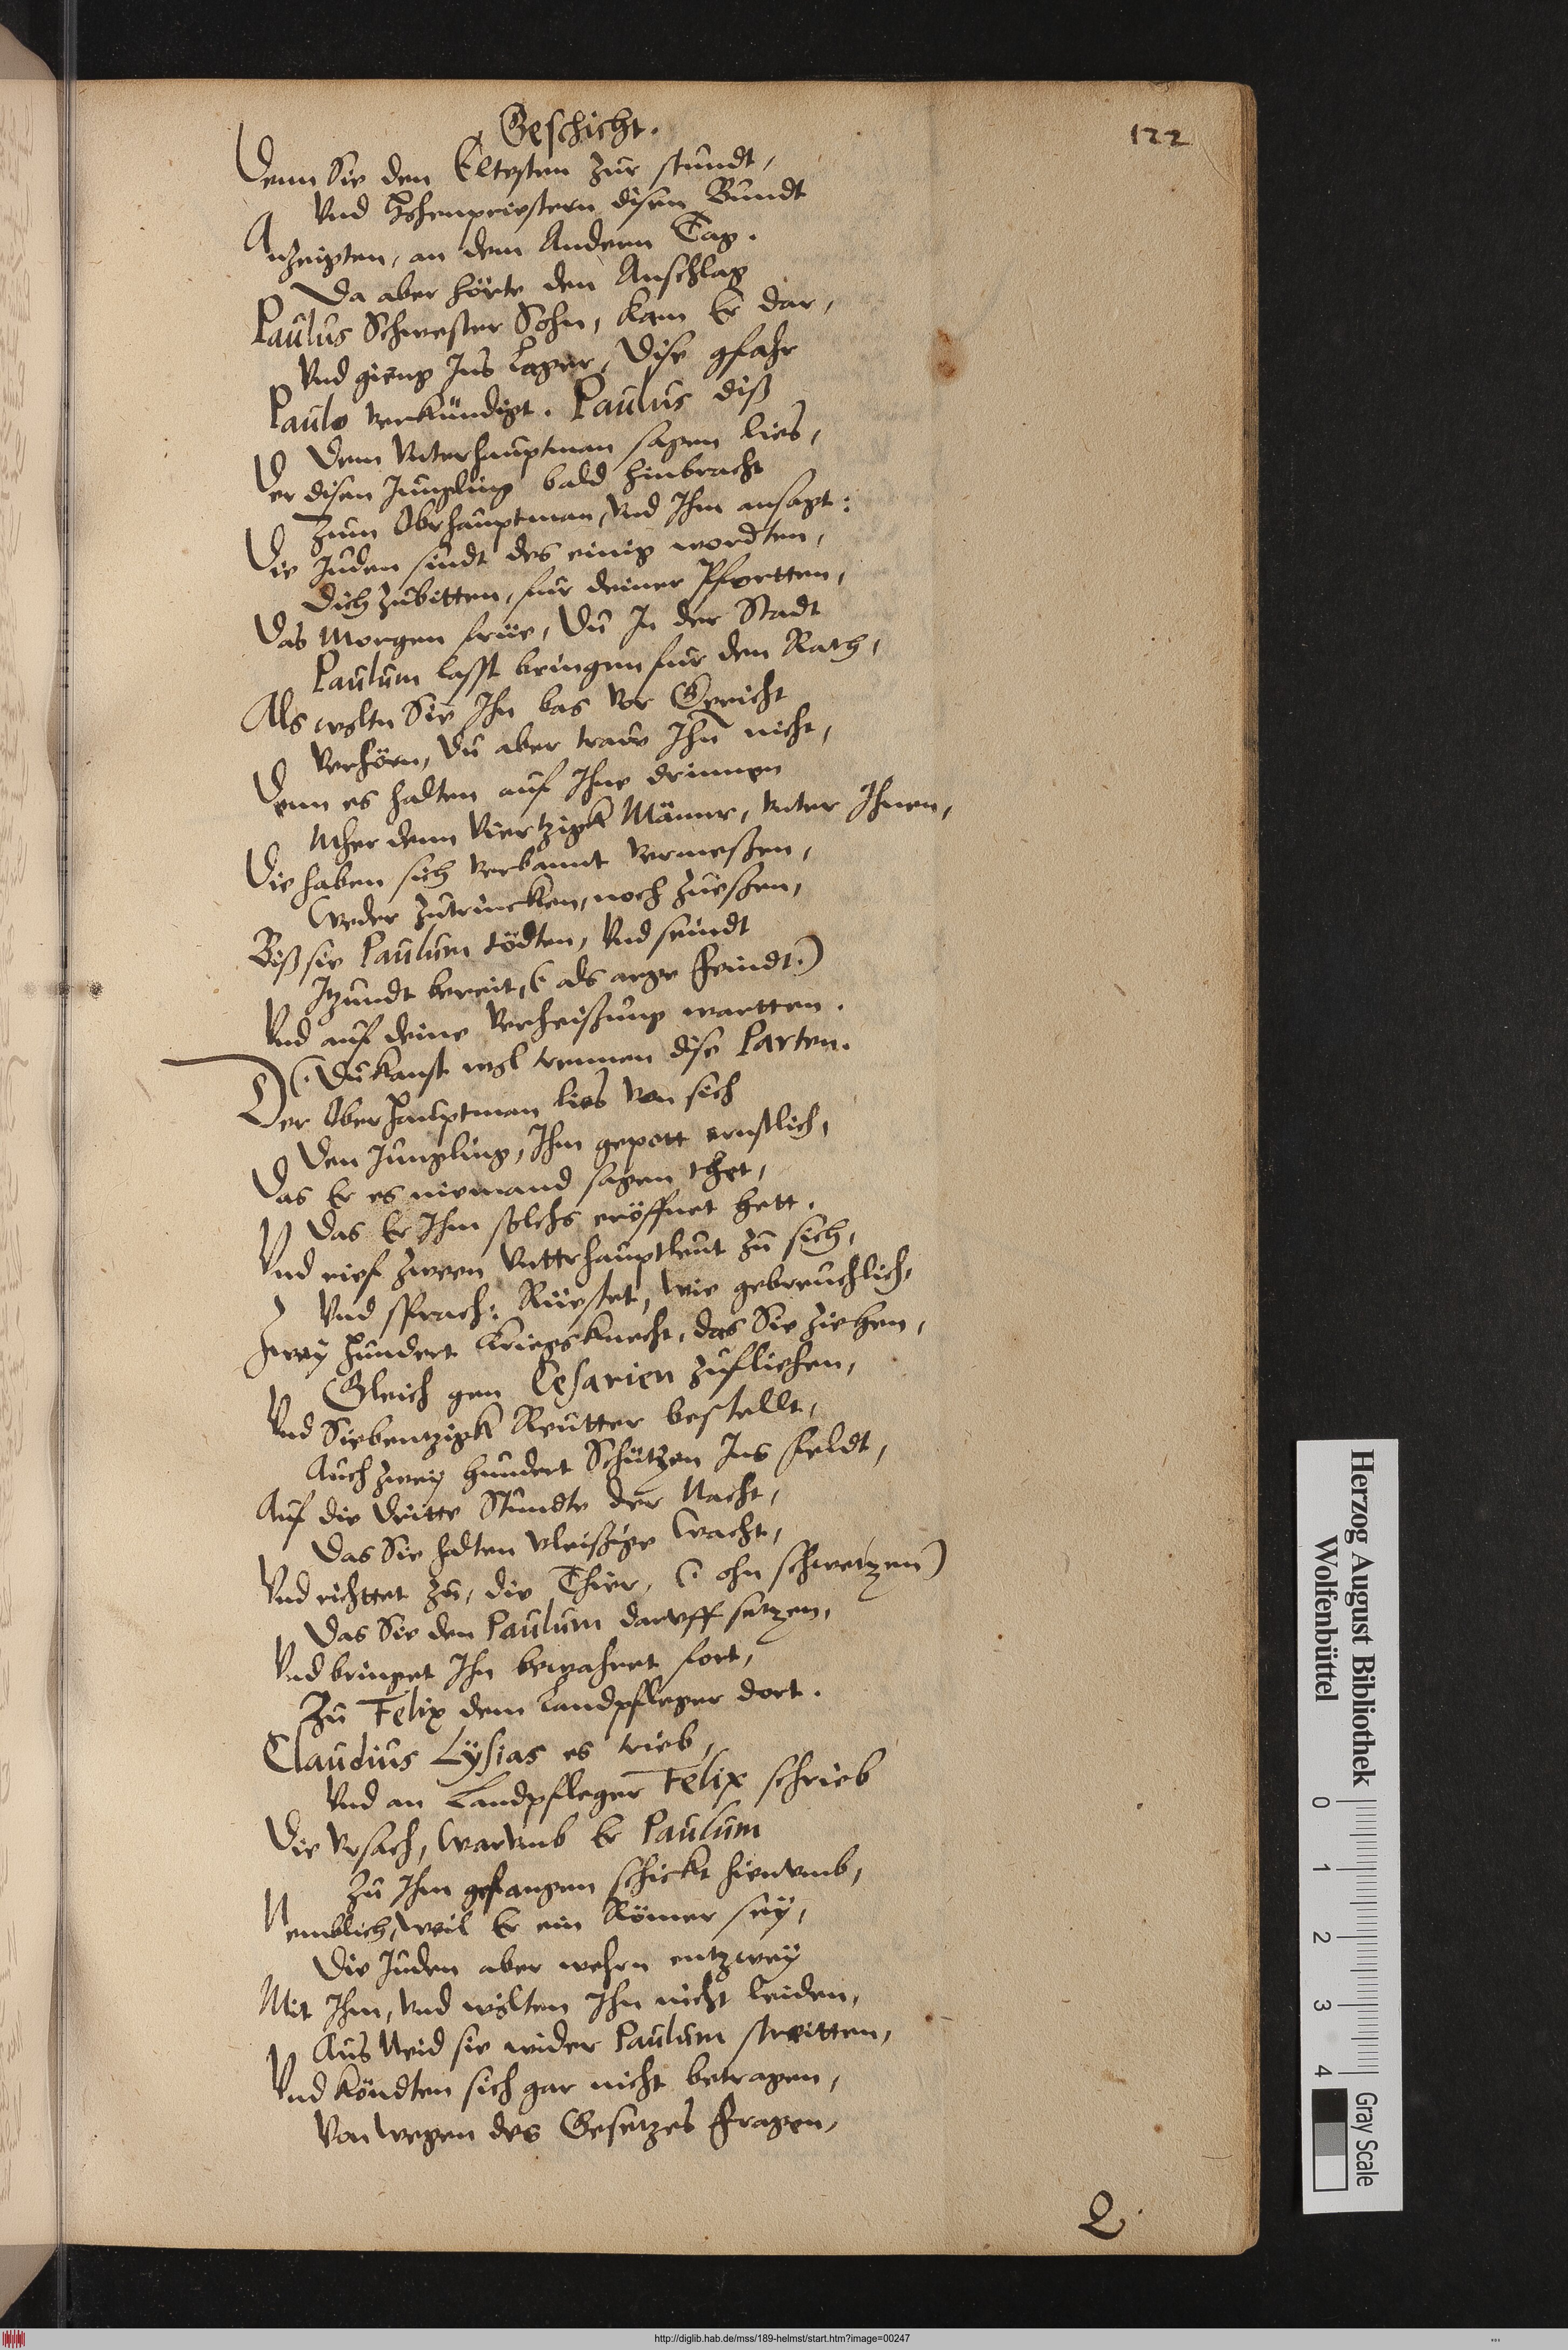 Geschicht.
122
Denn Sie den Eltesten zur stundt,
Vnd Hohenpriestern disen Bundt
Anzeigten, an dem Andern Tag.
Da aber hörte den Anschlag
Paulus Schwester Sohn, kam Er dar,
Vnd gieng Ins Lager, Dise gfahr
Paulo verkündigt. Paulus diß
Dem Vnterhauptman sagen lies,
Der disen Jungling bald hinbracht
Zum Obrhauptman, Vnd Ihm ansagt:
Die Juden sindt des einig wordten,
Dich zubitten, fur deiner Pfortten,
Das Morgen früe, Du In der Stadt
Paulum lasst bringen fur den Rath,
Als woltn Sie Ihn bas vor Gericht
Verhörn, Du aber traw Ihn nicht,
Denn es halten auf Ihne drinnen
Mher denn Viertzigk Männr, vnter Ihnen,
Die haben sich verbannt vermeßen,
Weder zutrincken, noch zueßen,
Biß sie Paulum tödten, Vnd seindt
Itzundt bereit, (als arge Feindt.)
Vnd auf deine Verheißung wartten.
(Du kanst wol trennen dise Parten.
Der Ober Hauptman lies von sich
Den Jungling, Ihm gepott ernstlich,
Das Er es niemand sagen thet,
Das Er Ihm solchs eröffnet hett.
Vnd rief zween Vnttrhauptleut zu sich,
Vnd sprach: Rüestet, wie gebreuchlich,
Zwey Hundert Kriegsknecht, das Sie ziehen,
Gleich gen Cesarien zufliehen,
Vnd Siebentzigk Reutter bestellt,
Auch zwey hundert Schützen Ins feldt,
Auf die dritte Stundte der Nacht,
Das Sie halten vleißige Wacht,
Vnd richttet zu, die Thier, (ohn schwetzen)
Das Sie den Paulum daruff setzen,
Vnd bringet Ihn bewahret fort,
Zu Felix dem Landpfleger dort.
Claudius Lÿsias es trieb,
Vnd an Landpfleger Felix schrieb
Die Vrsach, Warvmb Er Paulum
Zu Ihm gefangen schickt hierumb,
Nemblich, weil Er ein Römer seÿ,
Die Juden aber wehrn entzweÿ
Mit Ihm, Vnd wolten Ihn nicht leiden,
Aus Neid sie wider Paulum streitten,
Vnd köndten sich gar nicht betragen,
Von wegen des Gesetzes Fragen,
Q
Herzog August Bibliothek
Wolfenbüttel
0 1 2 3 4
Gray Scale
http://diglib.hab.de/mss/189-helmst/start.htm?image=00247